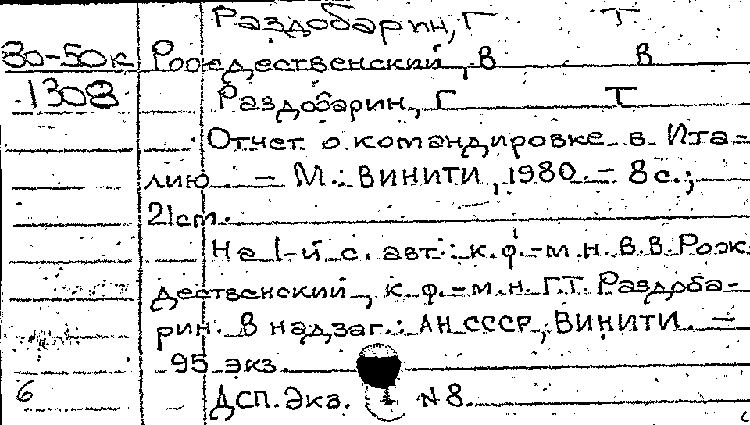 Раздобарин, Г Т
80-50к Рождественский, В В
1308 Раздобарин, Г Т
Отчет о командировке в Ита-
лию. - М.: ВИНИТИ, 1980. - 8 с.;
21 см.
На 1-й с. авт.: к.ф.-м.н. В.В. Рож-
дественский, к.ф.-м.н. Г.Т. Раздоба-
рин. В надзаг.: АН СССР, ВИНИТИ. -
95 экз.
6 ДСП. Экз. N 8.